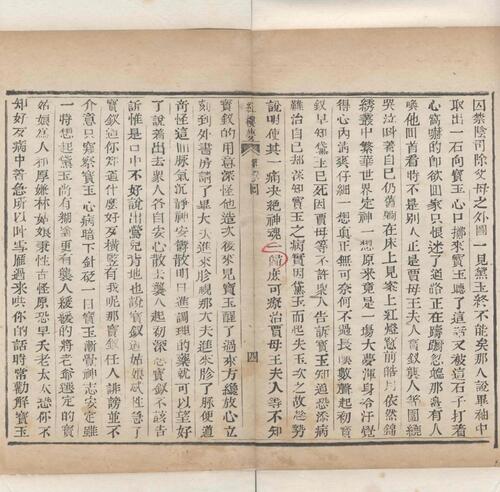 囚禁陰司除父母之外圖一見黛玉終不能矣那人說畢袖中
取出一石向寶玉心口擲來寶玉聽了這話又被這石子打着
心窩嚇的即欲回家只恨迷了道路正在躊躇忽聽那邊有人
喚他回首看時不是別人正是賈母王夫人寶釵襲人等圍繞
哭泣叫着自己仍舊躺在床上見案上紅燈窗前皓月依然錦
繡叢中繁華世界定神一想原來竟是一場大夢渾身冷汗覺
得心內清爽仔細一想真正無可奈何不過長嘆數聲起初寶
釵早知黛玉已死因賈母等不許衆人告訴寶玉知道恐添病
難治自己却深知寶玉之病實因黛玉而起失玉次之故趁勢
說明使其一痛决絕神魂一歸庶可療治賈母王夫人等不知
紅樓夢 回 四
寶釵的用意深怪他造次後來見寶玉醒了過來方纔放心立
刻到外書房請了畢大夫進來胗視那大夫進來胗了脉便道
奇怪這回脉氣沉靜神安鬱散明日進調理的藥就可以望好
了說着出去衆人各自安心散去襲人起初深怨寶釵不該告
訴惟是口中不好說出鶯兒背地也說寶釵道姑娘忒性急了
寶釵道你知道什麽好歹橫豎有我呢那寶釵任人誹謗並不
介意只窺察寶玉心病暗下針砭一日寶玉漸覺神志安定雖
一時想起黛玉尚有糊塗更有襲人緩緩的將老爺選定的寶
姑娘爲人和厚嫌林姑娘秉性古怪原恐早夭老太太恐你不
知好歹病中着急所以叫雪雁過來哄你的話時常勸解寶玉